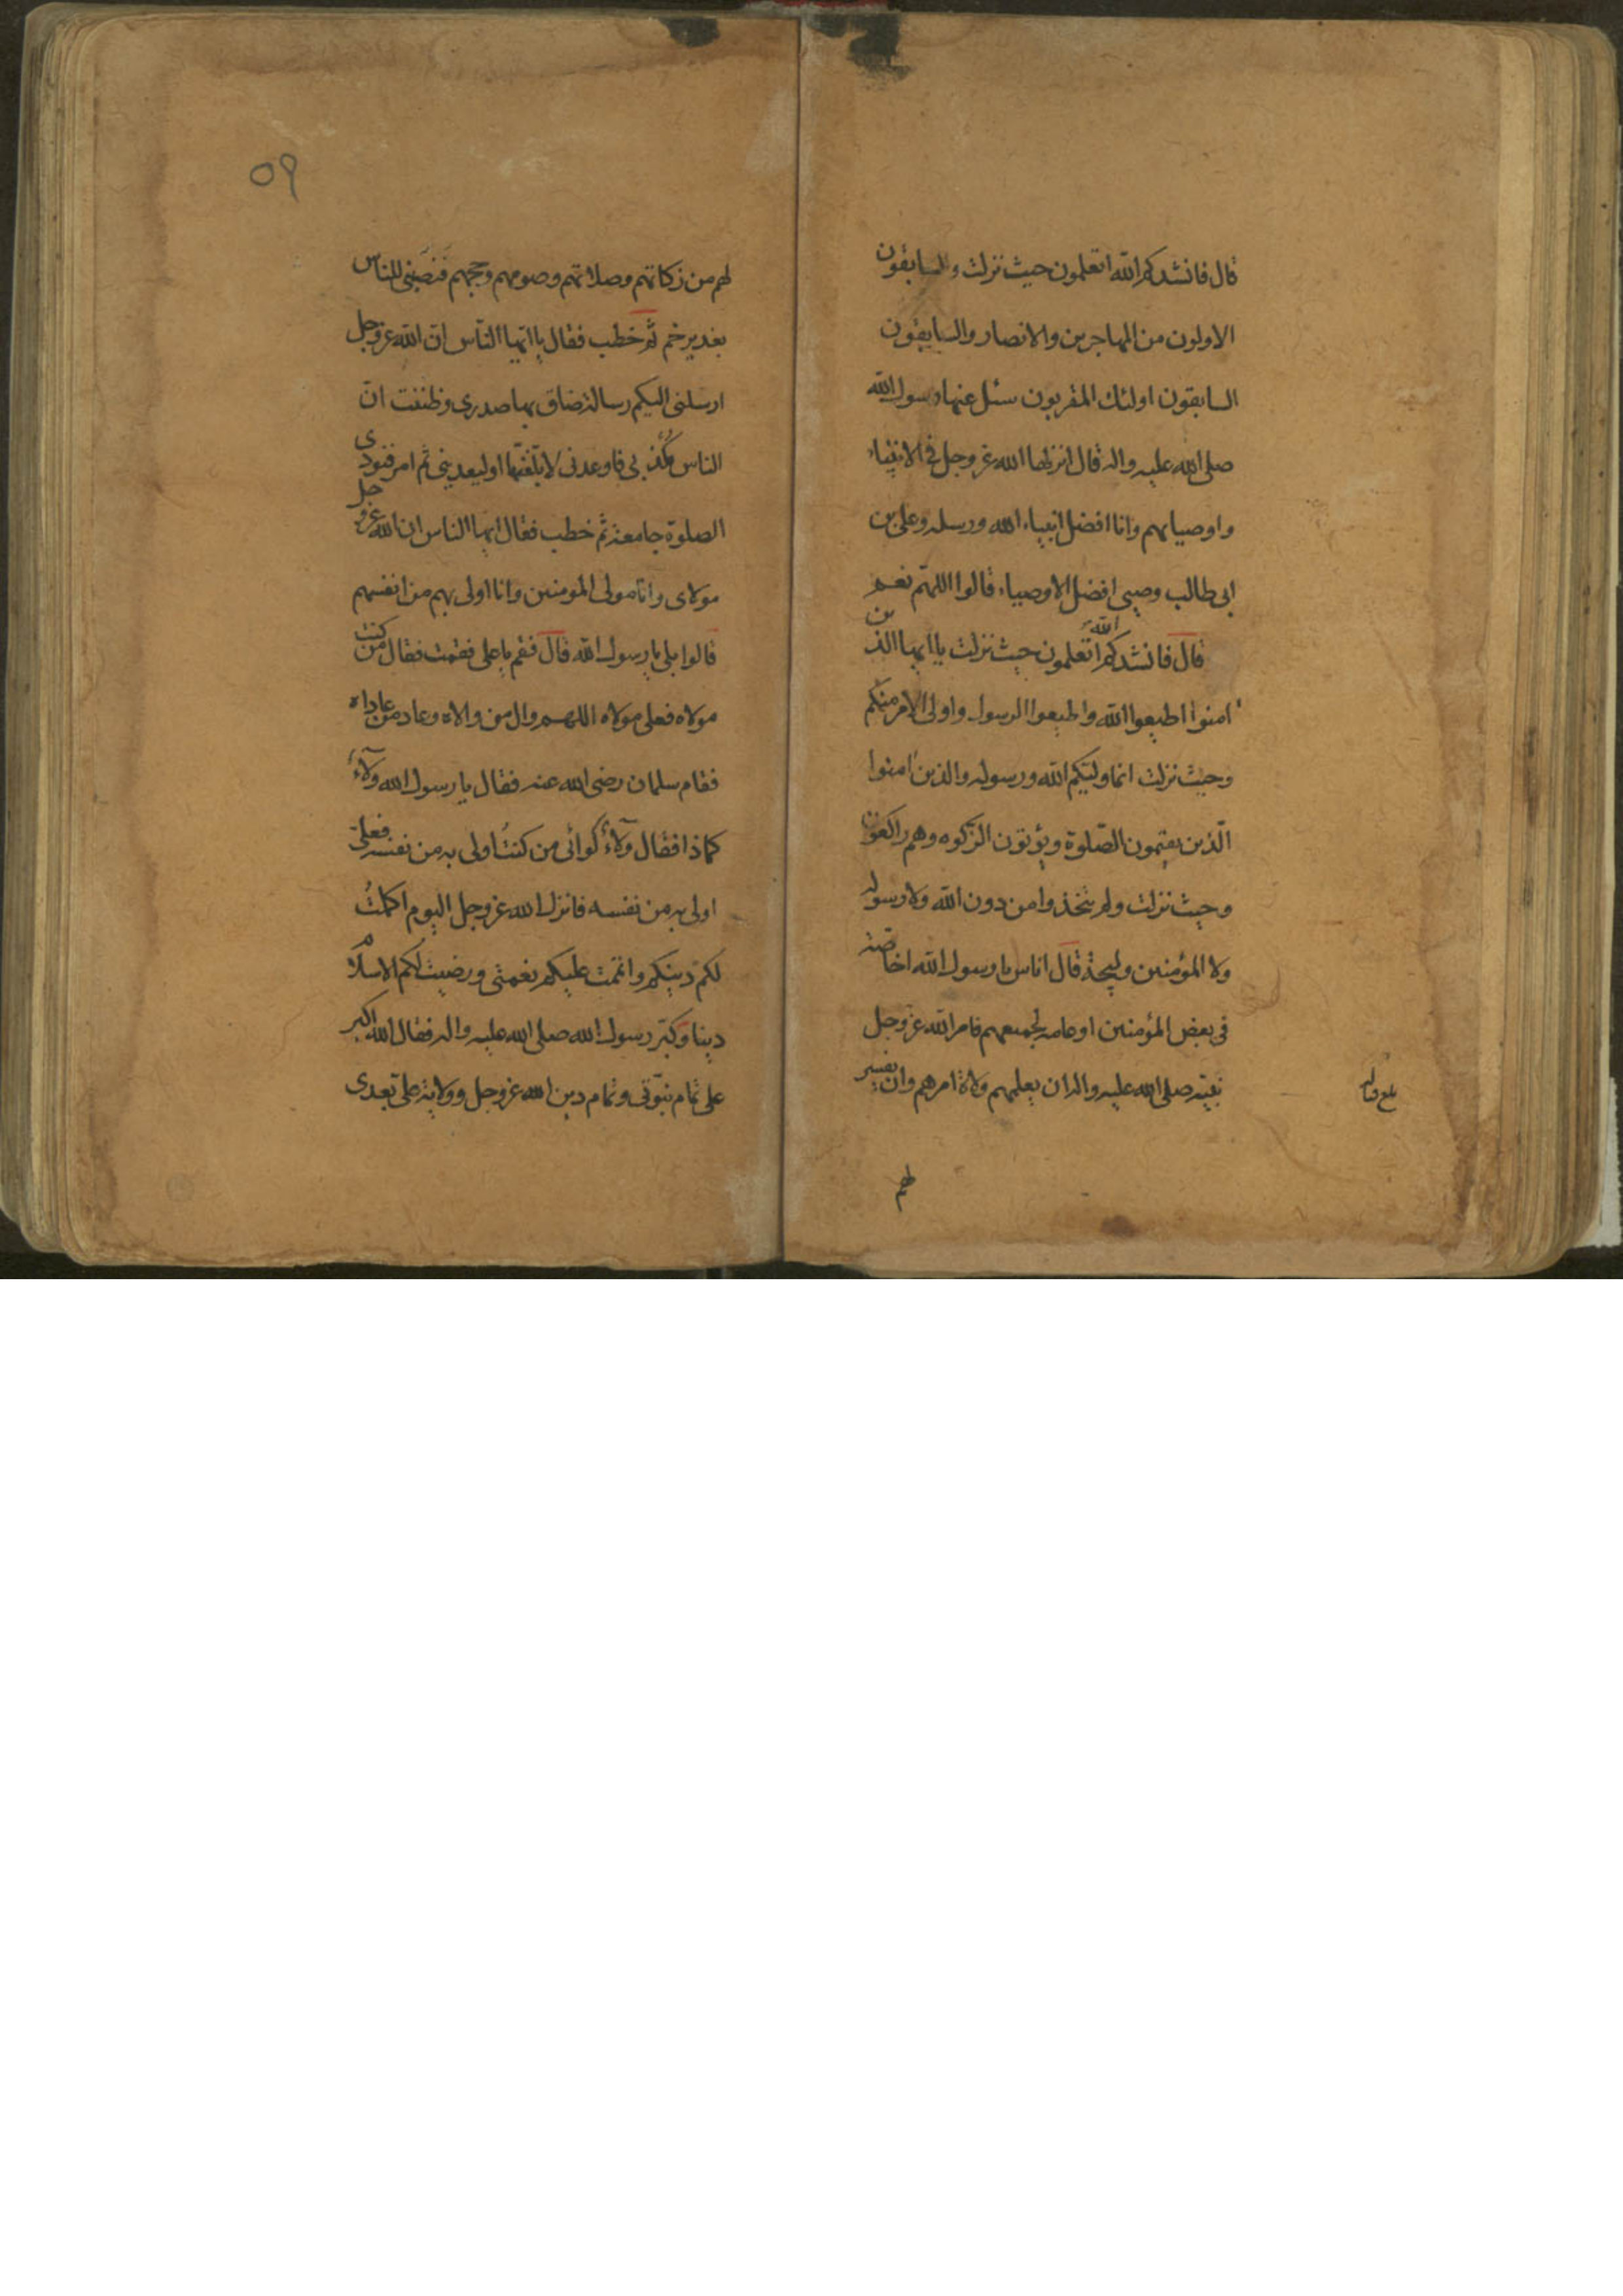 قال فانشدكم الله اتعلمون حيث نزلت والسابقون
الاولون من المهاجرين والانصار والسابقون
السابقون اولئك المقربون سئل عنها رسول الله
صلى الله عليه واله قال انزلها الله عز وجل فى الانبياء
واوصيائهم وانا افضل انبياء الله ورسله وعلى بن
ابى طالب وصيى افضل الاوصياء قالوا اللهم نعم
قال فانشدكم الله اتعلمون حيث نزلت يا ايها الذين
امنوا اطيعوا الله واطيعوا الرسول واولى الامر منكم
وحيث نزلت انما وليكم الله ورسوله والذين امنوا
الّذين يقيمون الصّلوة ويؤتون الزّكوه وهم راكعون
وحيث نزلت ولم يتخذوا من دون الله ولا رسوله
ولا المؤمنين وليجة قال اناس يا رسول الله اخاصة
فى بعض المؤمنين او عامه لجميعهم فامر الله عز وجل
نبيّه صلى الله عليه واله ان يعلمهم ولاة امرهم وان يفسر
بلغ قباله
لهم
٥٩
لهم من زكاتهم وصلاتهم وصومهم وحجهم فنصبنى للناس
بغدير خم ثم خطب فقال يا ايّها النّاس انّ الله عز وجل
ارسلنى اليكم رسالة ضاق بها صدرى وظننت انّ
الناس مكذبى فاوعدنى لابلّغنّها او ليعذبنى ثم امر فنودى
الصلوة جامعة ثم خطب فقال ايها الناس ان الله عز وجل
مولاى وانا مولى المومنين وانا اولى بهم من انفسهم
قالوا بلى يا رسول الله قال فقم يا على فقمت فقال من كنت
مولاه فعلى مولاه اللهم وال من والاه وعاد من عاداه
فقام سلمان رضى الله عنه فقال يا رسول الله ولآءً
كماذا فقال ولآءً كوائى من كنتُ اولى به من نفسه فعلىّ
اولى به من نفسه فانزل الله عز وجل اليوم اكملتُ
لكم دينكم واتممت عليكم نعمتى ورضيت لكم الاسلام
دينا وكبّر رسول الله صلى الله عليه واله فقال الله اكبر
على تمام نبوّتى وتمام دين الله عز وجل وولاية علىّ بعدى